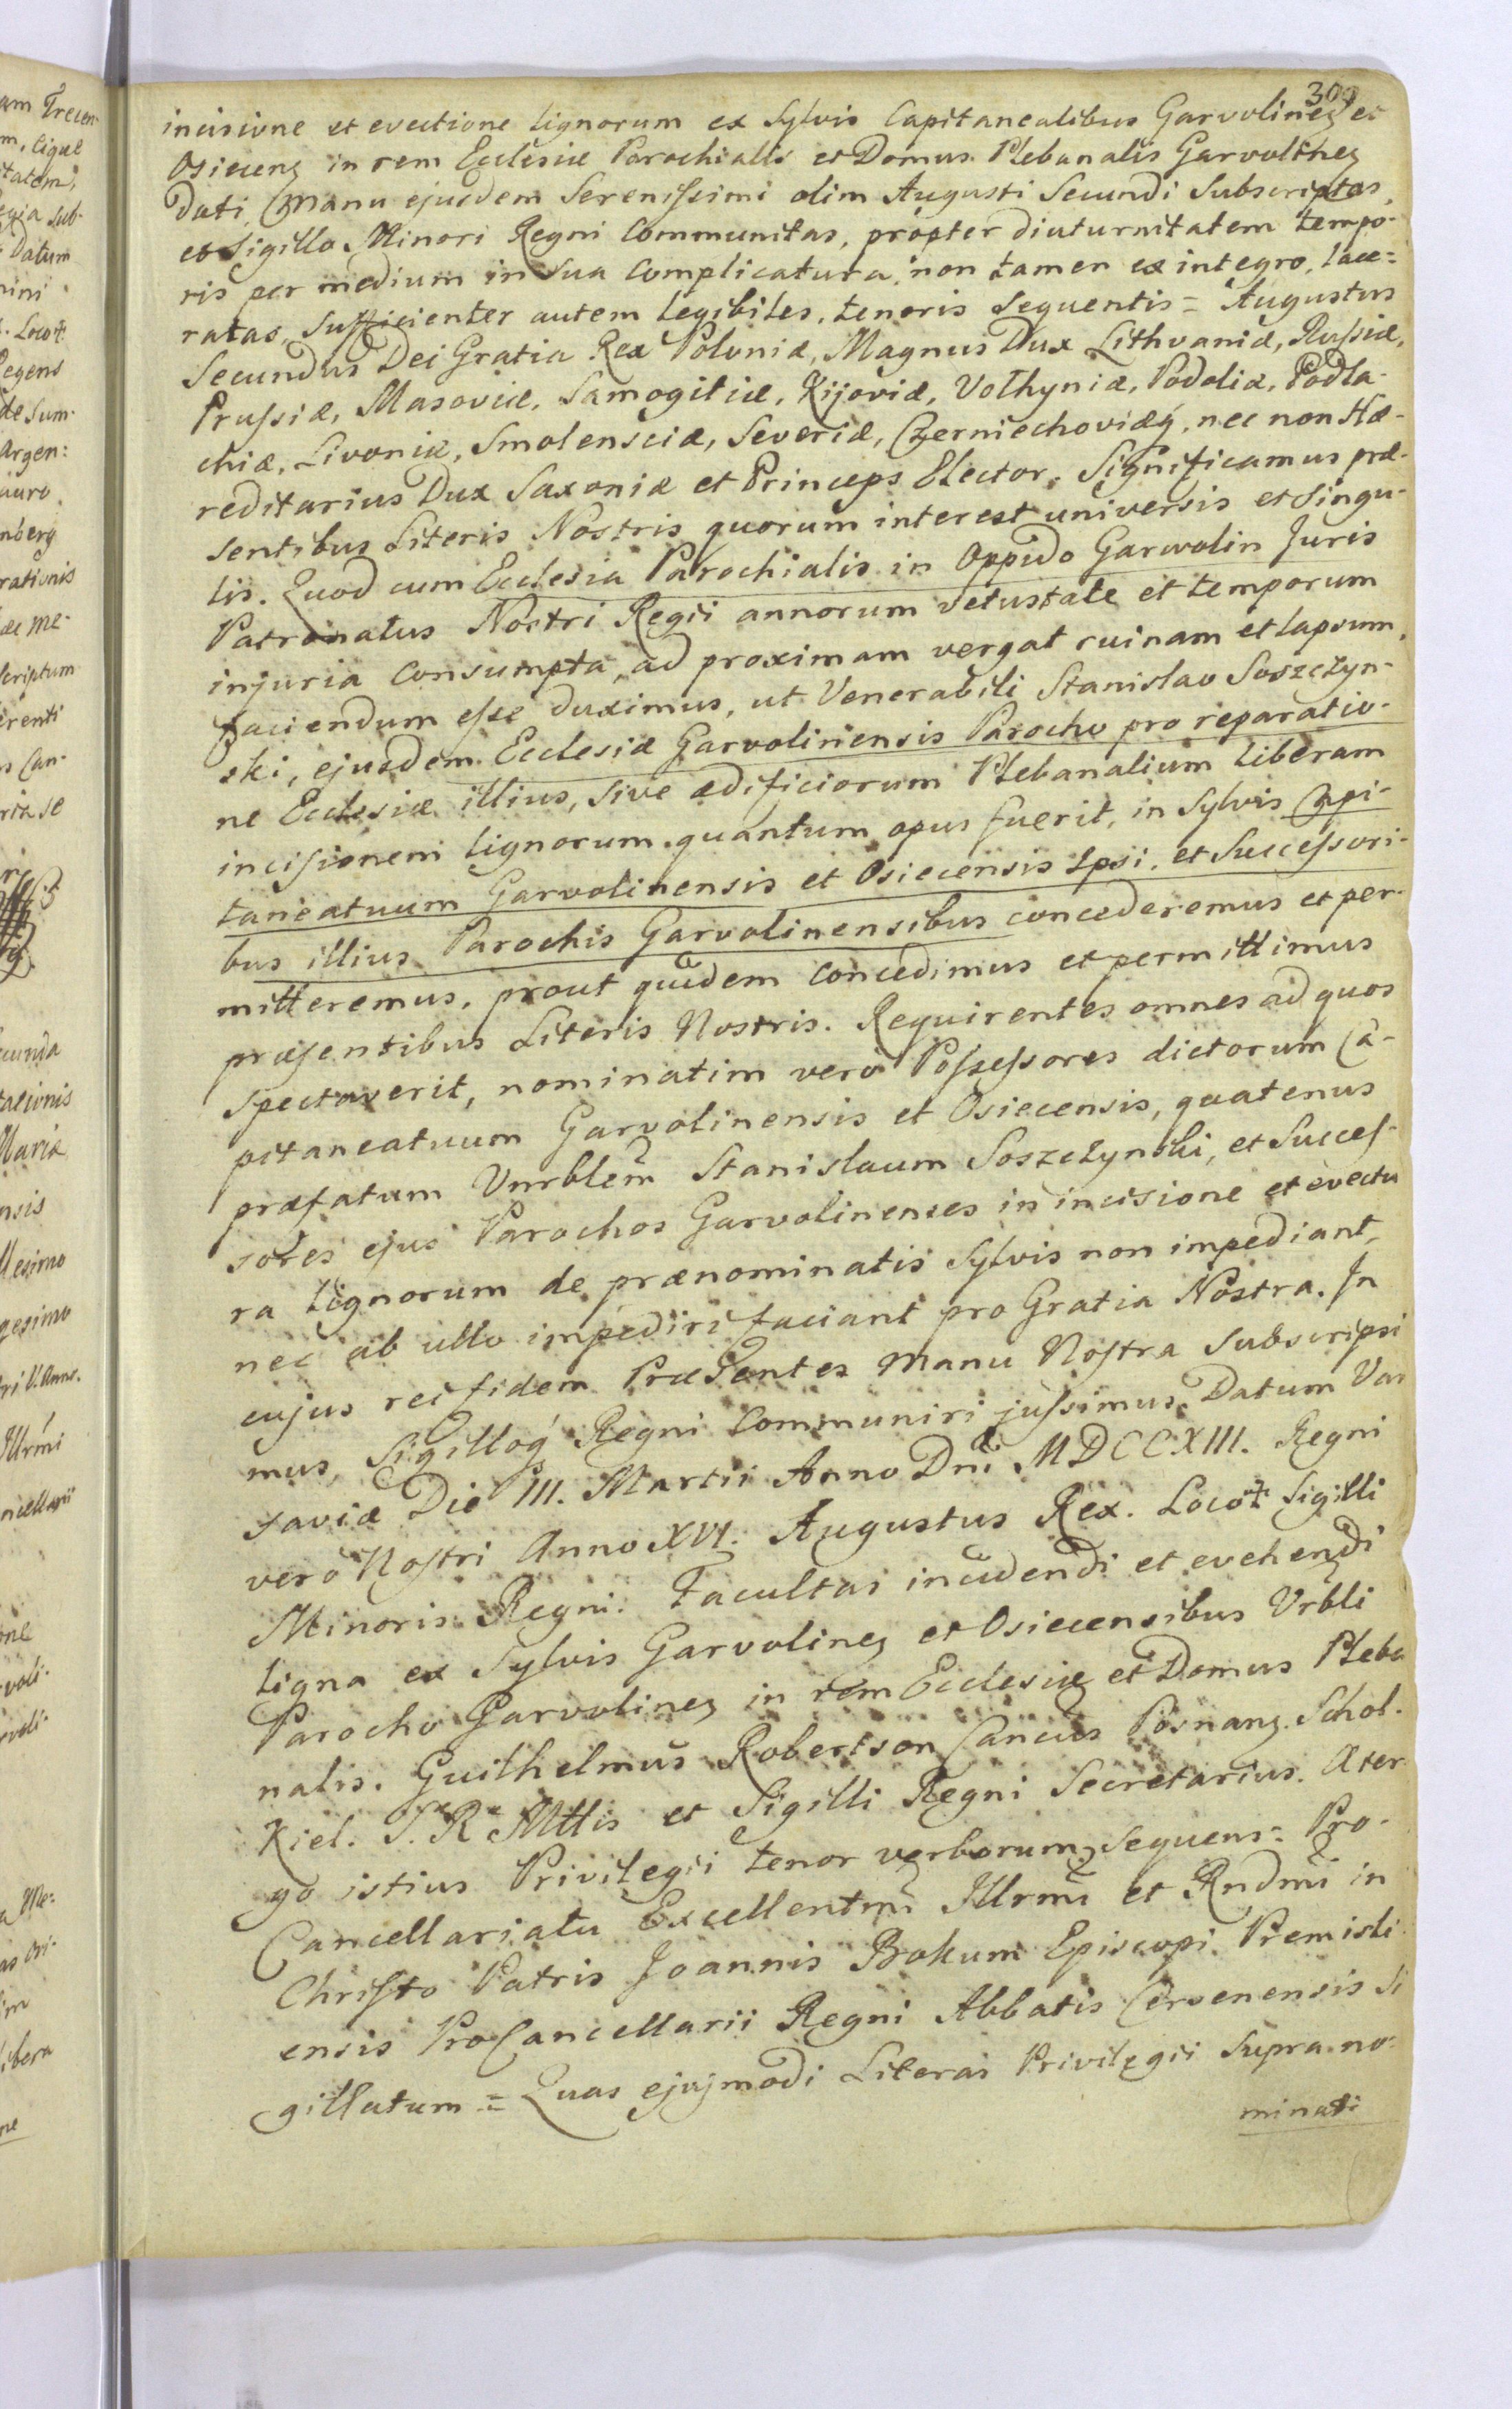 300
incisione et evectione lignorum ex Sylvis Capitanealibus Garvolinen et
Osiecen in rem Ecclesiæ Parochialis et Domus Plebanalis Garvolinen
dati, Manu ejusdem Serenissimi olim Augusti Secundi Subscriptas,
et Sigillo Minori Regni Communitas, propter diuturnitatem tempo-
ris per medium in sua Complicatura, non tamen ex integro, lace=
ratas, sufficienter autem legibiles, tenoris sequentis = Augustus
Secundus Dei Gratia Rex Poloniæ, Magnus Dux Lithvaniæ, Russiæ,
Prussiæ, Masoviæ, Samogitiæ, Kijoviæ, Volhyniæ, Podoliæ, Podla-
chiæ, Livoniæ, Smolensciæ, Severiæ, Czerniechoviæq́, nec non Hæ-
reditarius Dux Saxoniæ et Princeps Elector. Significamus præ-
sentibus Literis Nostris quorum interest universis et singu-
lis. Quod cum Ecclesia Parochialis in Oppido Garwolin Juris
Patronatus Nostri Regii annorum vetustate et temporum
injuria Consumpta, ad proximam vergat ruinam et lapsum,
faciendum esse duximus, ut Venerabili Stanislao Soszczyn-
ski, ejusdem Ecclesiæ Garvolinensis Parocho pro reparatio-
ne Ecclesiæ illius, sive ædificiorum Plebanalium liberam
incisionem lignorum quantum opus fuerit, in Sylvis Capi-
taneatuum Garvolinensis et Osiecensis Ipsi, et Successori-
bus illius Parochis Garvolinensibus concederemus et per-
mitteremus, prout quidem Concedimus et permittimus
præsentibus Literis Nostris. Requirentes omnes ad quos
spectaverit, nominatim verò Possessores dictorum Ca-
pitaneatuum Garvolinensis et Osiecensis, quatenus
præfatum Vnrblem̃ Stanislaum Soszczynski, et Succes-
sores ejus Parochos Garvolinenses in incisione et evectu
ra lignorum de prænominatis Sylvis non impediant,
nec ab ullo impediri faciant pro Gratia Nostra. In
cujus rei fidem Præsentes Manu Nostra Subscripsi
mus, Sigilloq́ Regni Communiri jussimus. Datum Var
saviæ Die III. Martii Anno Dni MDCCXIII. Regni
verò Nostri Anno XVI. Augustus Rex. Loco ✝ Sigilli
Minoris Regni. Facultas incidendi et evehendi
ligna ex Sylvis Garvolinen et Osiecensibus Vrbli
Parocho Garvolinen in rem Ecclesiæ et Domus Pleba
nalis. Guilhelmus Robertson Cancus Posnanen. Schol.
Kiel. S. R. Mttis et Sigilli Regni Secretarius. A ter
go istius Privilegii tenor verborum sequens = Pro-
Cancellariatu Excellentmi Illrmi et Rndmi in
Christo Patris Joannis Bokum Episcopi Premisli
ensis ProCancellarii Regni Abbatis Cersenensis Si
gillatum = Quas ejusmodi Literas Privilegii Supra no-
minati